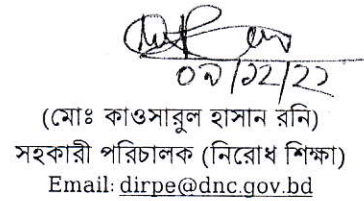 ০৯/১২/২২
(মোঃ কাওসারুল হাসান রনি)
সহকারী পরিচালক (নিরোধ শিক্ষা)
Email: dirpe@dnc.gov.bd